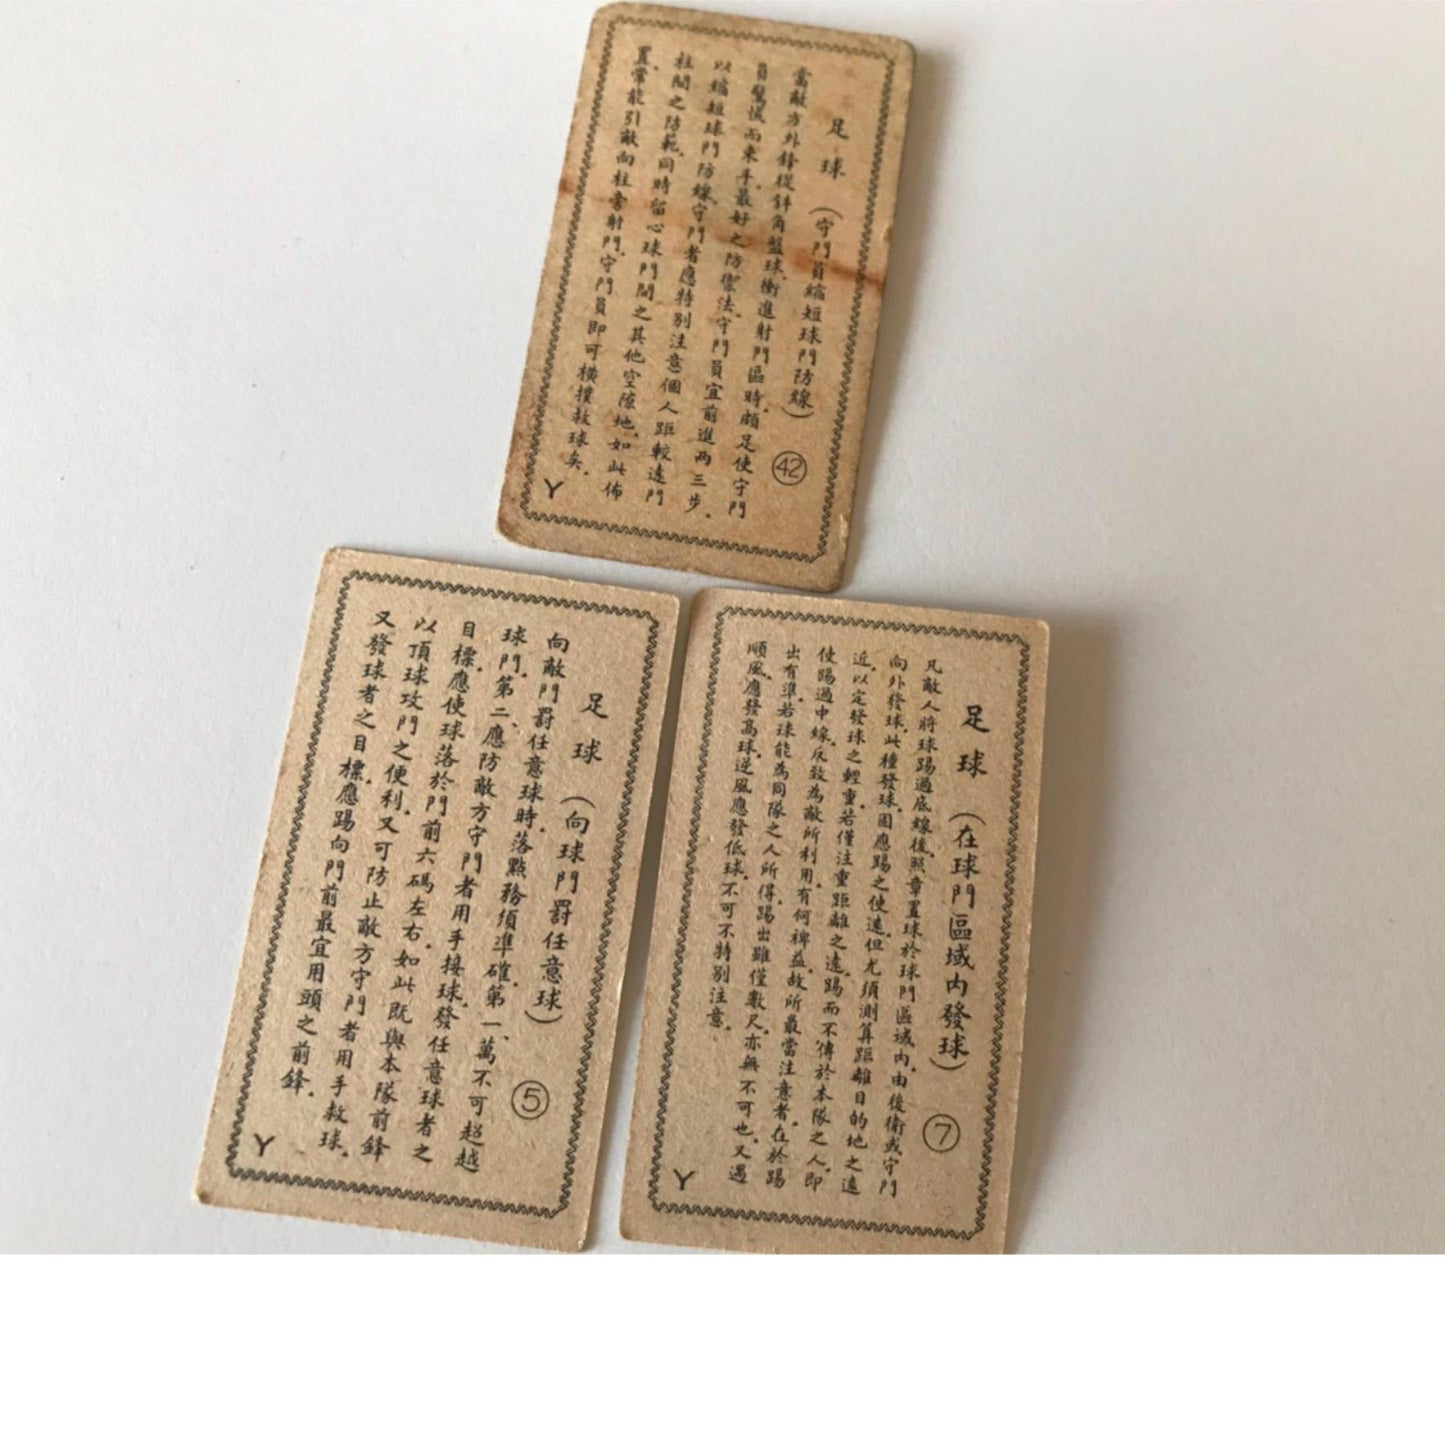 足球(守門員縮短球門防線)
42
當敵方外鋒從斜角盤球,衝進射門區時,頗足使守門
員驚慌而束手,最好之防禦法,守門員宜前進兩三步,
以縮短球門防線,守門者應特別注意個人距較遠門
柱間之防範,同時留心球門間之其他空隙地,如此佈
置,常能引敵向柱旁射門,守門員即可橫撲救球矣.
丫
足球(向球門罰任意球)
5
向敵門罰任意球時,落點務須準確,第一、萬不可超越
球門,第二、應防敵方守門者用手接球,發任意球者之
目標,應使球落於門前六碼左右,如此既與本隊前鋒
以頂球攻門之便利,又可防止敵方守門者用手救球,
又發球者之目標,應踢向門前最宜用頭之前鋒.
丫
足球(在球門區域內發球)
7
凡敵人將球踢過底線後,照章置球於球門區域內,由後衛或守門
向外發球,此種發球,固應踢之使遠,但尤須測算距離目的地之遠
近,以定發球之輕重,若僅注重距離之遠,踢而不傳於本隊之人,即
使踢過中線,反致為敵所利用,有何裨益,故所最當注意者,在於踢
出有準,若球能為同隊之人所得,踢出雖僅數尺,亦無不可也,又遇
順風,應發高球,逆風應發低球,不可不特別注意.
丫